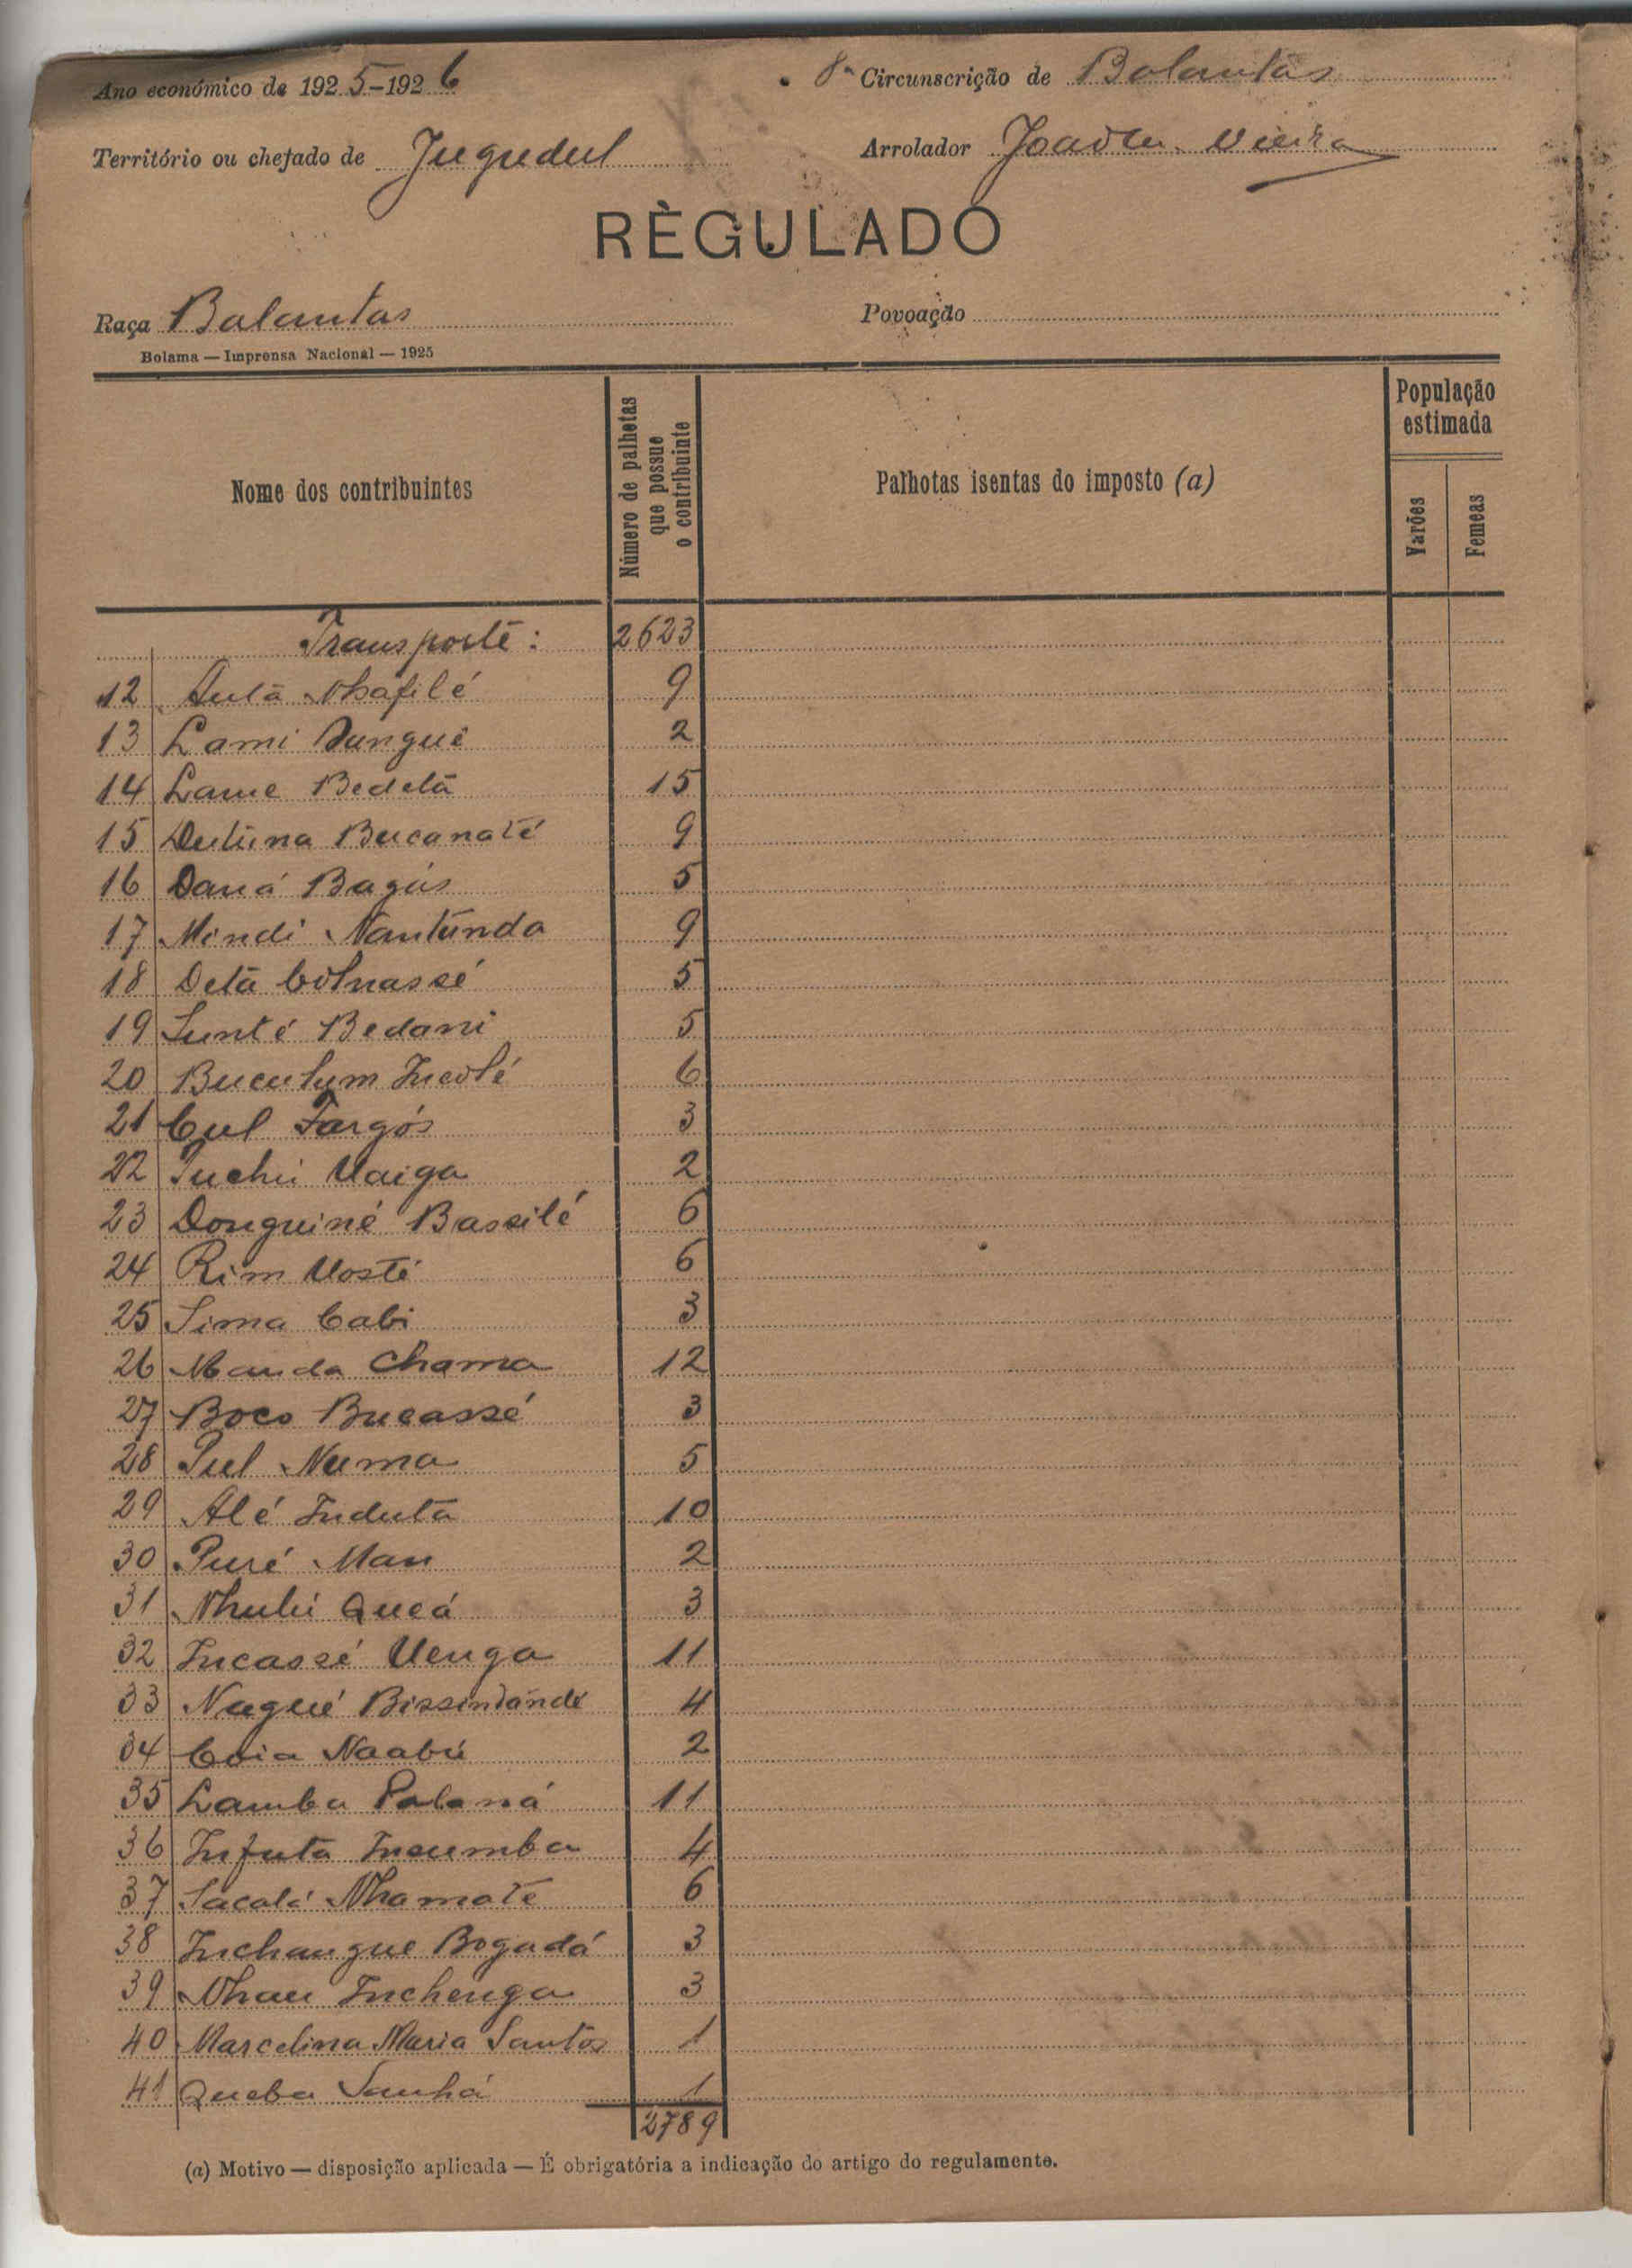 Ano económico de 1925-1926
8ª Circunscrição de Balantas
Território ou chefado de Jugudul
Arrolador Vieira
RÈGULADO
Raça Balantas
Povoação
Bolama — Imprensa Nacional — 1925
Nome dos contribuintes
Número de palhetas que possue o contribuinte
Palhotas isentas do imposto (a)
População estimada
Varões
Femeas
Transporte: 2623
12 Nhafilé 9
13 Lami Dungué 2
14 Lame Bedetã 15
15 Bucanaté 9
16 Daná Bagús 5
17 Mindi Nantúnda 9
18 Detã 5
19 Sunté Bedani 5
20 Buculum Incolé 6
21 Cul Fargós 3
22 Uaiga 2
23 Donguiné Bassilé 6
24 Rim Uosté 6
25 Sima Cabi 3
26 Manda Chama 12
27 Boco Bucassé 3
28 Pul Numa 5
29 Alé Indutã 10
30 Puré Man 2
31 Queá 3
32 Incassé Uenga 11
33 Nagué 4
34 Coia Naabú 2
35 Lamba Palaná 11
36 Infuta Incumba 4
37 Sacalá Nhamate 6
38 Inchangue Bogadá 3
39 Nhau Inchenga 3
40 Marcelina Maria Santos 1
41 Queba Sanhá 1
2789
(a) Motivo — disposição aplicada — É obrigatória a indicação do artigo do regulamento.